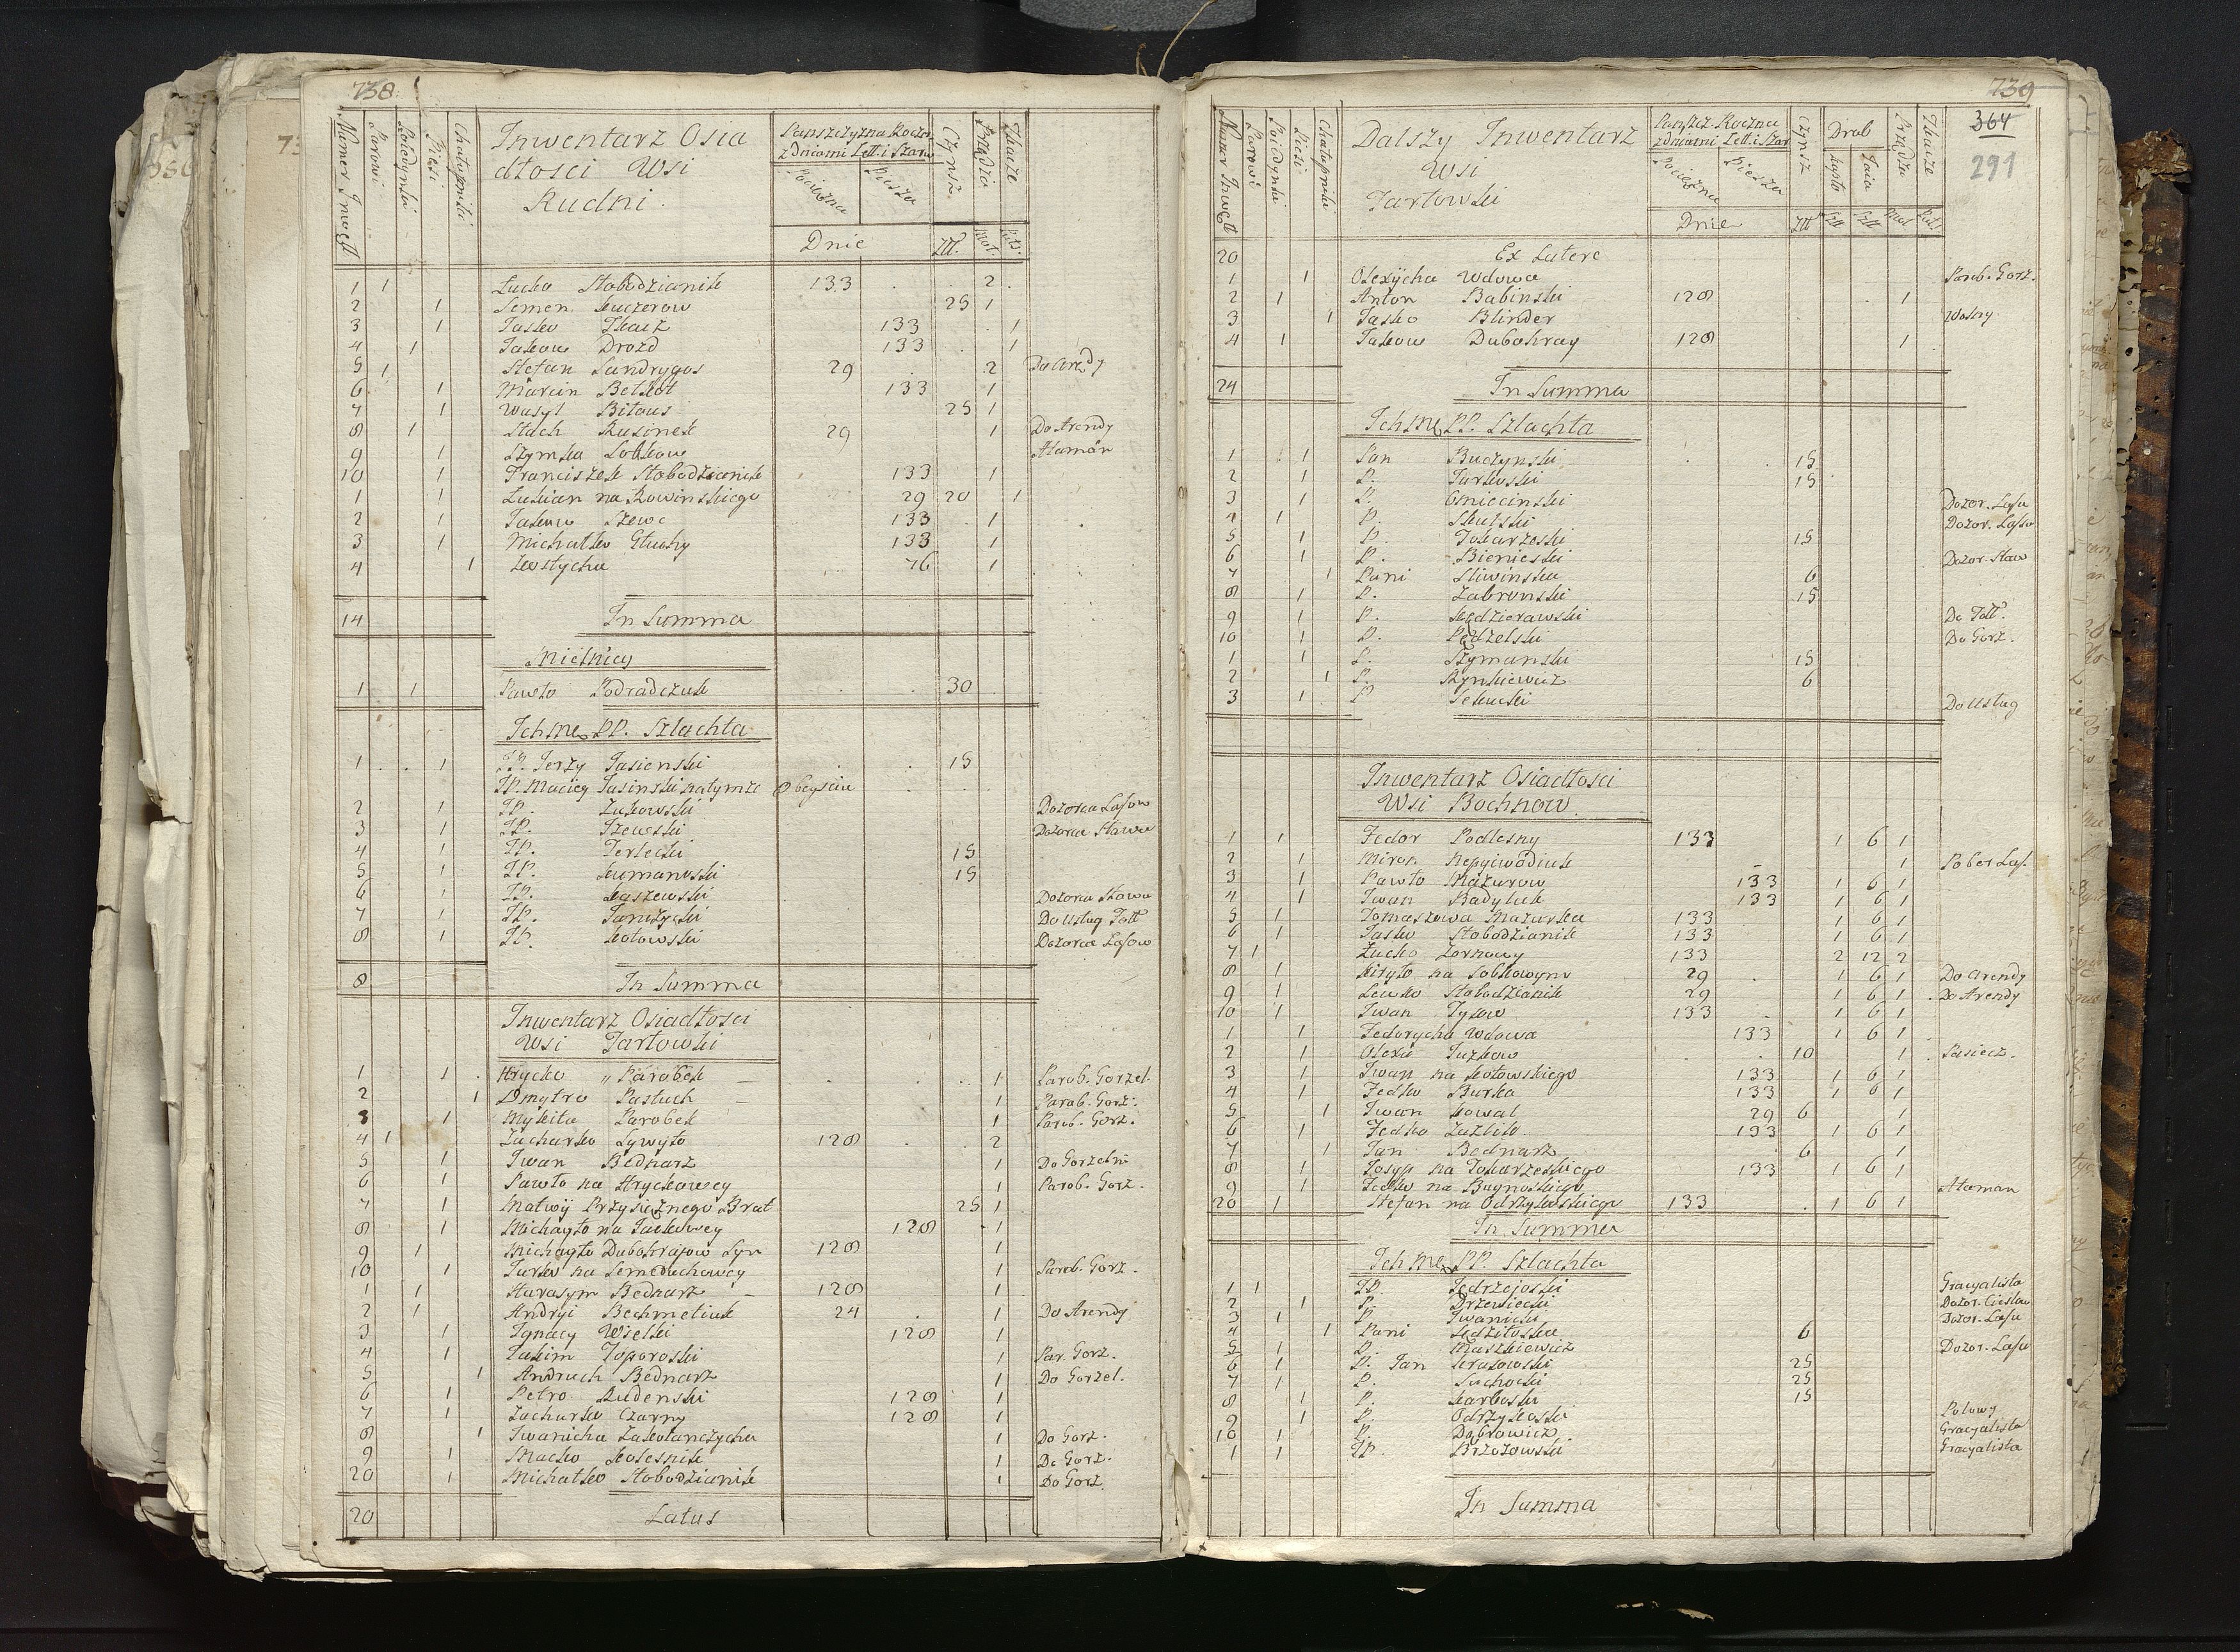 738
Numer Inwętt
Parowi
Pojedynki
Piesi
Chałupniki
Inwentarz Osia
dłosci Wsi
Rudni.
Panszczyzna Roczn
z Dniami Lett. i Szarw
Pociężna
Piesza
Czynsz
Przędza
Tłucze
Dnie
Ztt.
Mot.
1 1 Łucko Słobodzianik 133 2
2 1 Semen Kuczerow 25 1
3 1 Jasko Tkacz 133 1
4 1 Jakow Drozd 133 1
5 1 Stefan Sandrygos 29 2 Do Arędy
6 1 Marcin Betkot 133 1
7 1 Wasyl Bitous 25 1
8 1 Stach Rusinek 29 1 Do Arendy
9 1 Szymka Sobkow Ataman
10 1 Franciszek Słobodzianik 133 1
1 1 Łukian na Rowinskiego 29 20 1
2 1 Jakow Szewc 133 1
3 1 Michałko Głuchy 133 1
4 1 Kostycha 76 1
14 In Summa
Mielnicy
1 1 Pawło Podradczuk 30
Ichmc PP. Szlachta
1 1 JP. Jerzy Jasienski 15
JP. Maciey Jasinski na tymze Obeysciu
2 1 JP. Żukowski Dozorca Lasow
3 1 JP. Dozorca Stawu
4 1 JP. Terlecki 15
5 1 JP. Kumanoski 15
6 1 JP. Kaszewski Dozorca Stawu
7 1 JP. Do Usług Fott
8 1 JP. Kotowski Dozorca Lasow
8 In Summa
Inwentarz Osiadłosci
Wsi Jartowki
1 1 Hrycko " Parobek 1 Parob. Gorzel.
2 1 Dmytro Pastuch 1 Parob. Gorz.
3 1 Mykita Parobek 1 Parob. Gorz.
4 1 Zacharko Sywyło 128 2
5 1 Iwan Bednarz 1 Do Gorzelni
6 1 Pawło na Hryckowey 1 Parob. Gorz.
7 1 Matwij Przysiężnego Brat 25 1
8 1 Michayło na Jackowey 128 1
9 1 Michayło Dubohrajow Syn 128 1
10 1 Jurko na Semeduchowey 1 Parob. Gorz.
1 1 Harasym Bednarz 128 1
2 1 Andryi Bechmetiuk 24 1 Do Arendy
3 1 Ignacy Wielki 128 1
4 1 Jakim Toporoski 1 Par. Gorz.
5 1 Andruch Bednarz 1 Do Gorzel.
6 1 Petro Rudenski 128 1
7 1 Zacharko Czarny 128 1
8 1 Iwanicha Zakotanczycha 1 Do Gorz.
9 1 Macko Kolesnik 1 Do Gorz.
20 1 Michałko Słobodzianik 1 Do Gorz.
20 Latus
739
364
291
Numer Inwętt
Parowi
Pojedynki
Piesi
Chałupniki
Dalszy Inwentarz
Wsi
Jartowki
Panszcz. Roczna
z Dniami Lett. i Szar
Pociężna
Piesza
Czynsz
Drob
Kapło
Jaia
Przędza
Tłucze
Dnie
Ztt
Szt
Szt
Mot
20 Ex Latere
1 1 Olexycha Wdowa Parob. Gorz.
2 1 Anton Babinski 128 1
3 1 Jasko Blinder Wolny
4 1 Jakow Dubohray 128 1
24 In Summa
Ichmc PP. Szlachta
1 1 Pan Buczynski 15
2 1 P. Jurkoski 15
3 1 P. Gniecinski Dozor. Lasu
4 1 P. Skulski Dozor. Lasu
5 1 P. Tokarzeski 15
6 1 P. Bienieski Dozor. Staw
7 1 Pani Sliwinska 6
8 1 P. Zabronski 15
9 1 P. Kędzierawski Do Fott.
10 1 P. Pędzelski Do Gorz.
1 1 P. Szymanski 15
2 1 P. Rynkiewicz 6
3 1 P. Do Usług
Inwentarz Osiadłosci
Wsi Bochnow
1 1 Fedor Podlesny 133 1 6 1
2 1 Miron Nepyiwodiuk 1 Pober Las.
3 1 Pawło Mazurow 133 1 6 1
4 1 Iwan Badyluk 133 1 6 1
5 1 Tomaszowa Mazurka 133 1 6 1
6 1 Jasko Słobodzianik 133 1 6 1
7 1 Łucko Zornowy 133 2 12 2
8 1 Kiryło na Sobkowym 29 1 6 1 Do Arendy
9 1 Lewko Słobodzianik 29 1 6 1 Do Arendy
10 1 Iwan Tysow 133 1 6 1
1 1 Fedorycha Wdowa 133 1 6 1
2 1 Olexa Juzkow 10 1 Pasiecz.
3 1 Iwan na Kotowskiego 133 1 6 1
4 1 Fedko Burka 133 1 6 1
5 1 Iwan Kowal 29 6 1
6 1 Fedko Zazlik 133 1 6 1
7 1 Jan Bednarz 6 1
8 1 Josyp na Tokarzeskiego 133 1 6 1
9 1 Fedko na Bugnoskiego Ataman
20 1 Stefan na Odrzywolskiego 133 1 6 1
In Summa
Ichmc PP. Szlachta
1 1 JP. Jędrzejoski Gracyalista
2 1 P. Drzewiecki Dozor. Cieslow
3 1 P. Iwanicki Dozor. Lasu
4 1 Pani 6
5 1 P. Maszkiewicz Dozor. Lasu
6 1 P. Jan Krasowski 25
7 1 P. Suchocki 25
8 1 P. Karboski 15
9 1 P. Odrzywolski Polowy
10 1 P. Dąbrowicz Gracyalista
1 1 JP. Brzozowski Gracyalista
In Summa